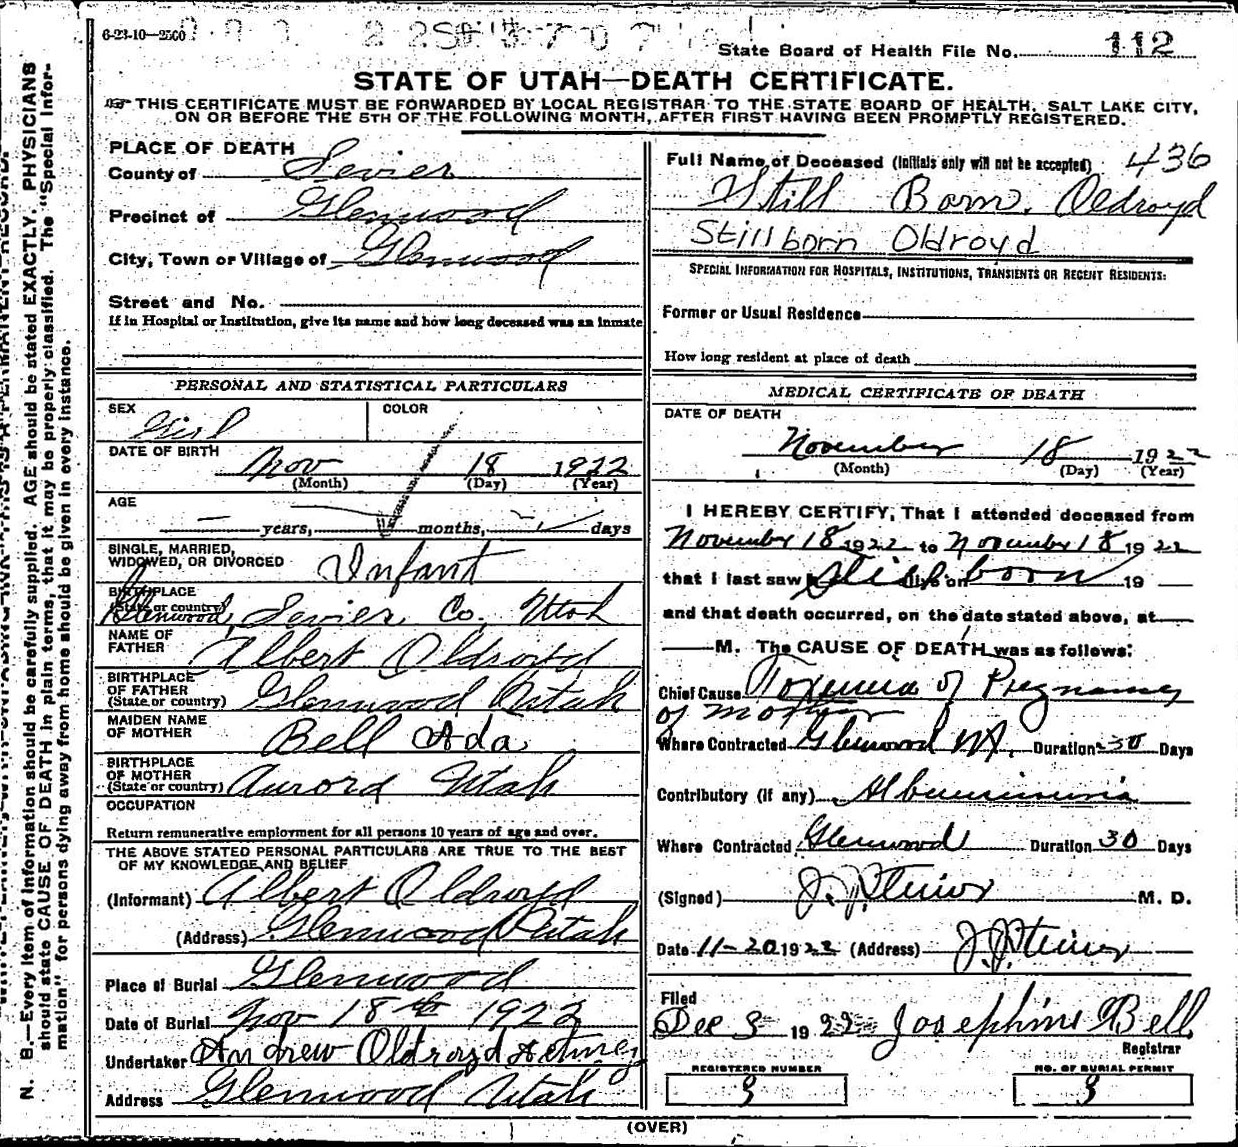 6-23-10—2500
State Board of Health File No. 112
STATE OF UTAH—DEATH CERTIFICATE.
THIS CERTIFICATE MUST BE FORWARDED BY LOCAL REGISTRAR TO THE STATE BOARD OF HEALTH, SALT LAKE CITY,
ON OR BEFORE THE 5TH OF THE FOLLOWING MONTH, AFTER FIRST HAVING BEEN PROMPTLY REGISTERED.
PLACE OF DEATH
County of Sevier
Precinct of Glenwood
City, Town or Village of Glenwood
Street and No.
If in Hospital or Institution, give its name and how long deceased was an inmate
PERSONAL AND STATISTICAL PARTICULARS
SEX COLOR
Girl
DATE OF BIRTH
Nov 18 1922
(Month) (Day) (Year)
AGE
— years, — months, — days
SINGLE, MARRIED,
WIDOWED, OR DIVORCED Infant
BIRTHPLACE
(State or country)
Glenwood, Sevier Co, Utah
NAME OF
FATHER Albert Oldroyd
BIRTHPLACE
OF FATHER
(State or country) Glenwood Utah
MAIDEN NAME
OF MOTHER Bell Ada
BIRTHPLACE
OF MOTHER
(State or country) Aurora Utah
OCCUPATION
Return remunerative employment for all persons 10 years of age and over.
THE ABOVE STATED PERSONAL PARTICULARS ARE TRUE TO THE BEST
OF MY KNOWLEDGE AND BELIEF
(Informant) Albert Oldroyd
(Address) Glenwood Utah
Place of Burial Glenwood
Date of Burial Nov 18th 1922
Undertaker Andrew Oldroyd
Address Glenwood Utah
Full Name of Deceased (Initials only will not be accepted) 436
Still Born Oldroyd
Stillborn Oldroyd
SPECIAL INFORMATION FOR HOSPITALS, INSTITUTIONS, TRANSIENTS OR RECENT RESIDENTS:
Former or Usual Residence
How long resident at place of death
MEDICAL CERTIFICATE OF DEATH
DATE OF DEATH
November 18 1922
(Month) (Day) (Year)
I HEREBY CERTIFY, That I attended deceased from
November 18 1922 to November 18 1922
that I last saw h alive on Stillborn 19
and that death occurred, on the date stated above, at
M. The CAUSE OF DEATH was as follows:
Chief Cause Toxemia of Pregnancy
of mother
Where Contracted Glenwood Ut. Duration 30 Days
Contributory (if any) Albuminuria
Where Contracted Glenwood Duration 30 Days
(Signed) J. J. Steiner M. D.
Date 11-20 1922 (Address) J. J. Steiner
Filed
Dec 3 1922 Josephine Bell
Registrar
REGISTERED NUMBER NO. OF BURIAL PERMIT
3 3
(OVER)
N. B.—Every item of information should be carefully supplied. AGE should be stated EXACTLY. PHYSICIANS
should state CAUSE OF DEATH in plain terms, that it may be properly classified. The "Special Infor-
mation" for persons dying away from home should be given in every instance.